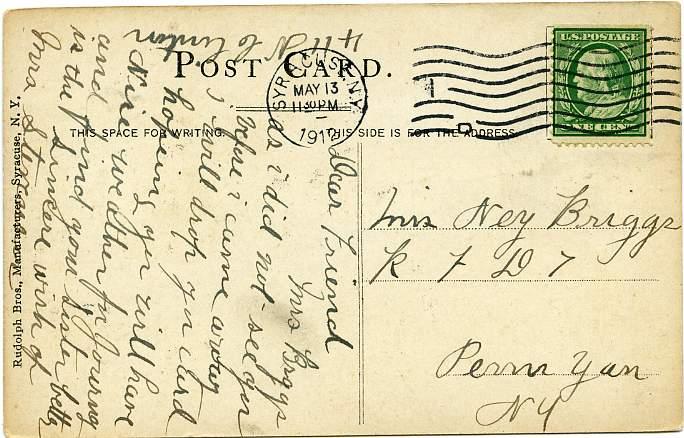 POST CARD.
THIS SPACE FOR WRITING.
THIS SIDE IS FOR THE ADDRESS
SYRACUSE, N.Y.
MAY 13
11 30 PM
191
1
U.S. POSTAGE
ONE CENT
Mrs Ney Briggs
R F D 7
Penn Yan
NY
411 N
Dear Friend
Mrs Briggs
as i did not see you
before i came away
i will drop you a card
hopeing you will have
Nice weather for journy
and find your sister better
is the sincere wish of
Mrs
Rudolph Bros., Manufacturers, Syracuse, N. Y.